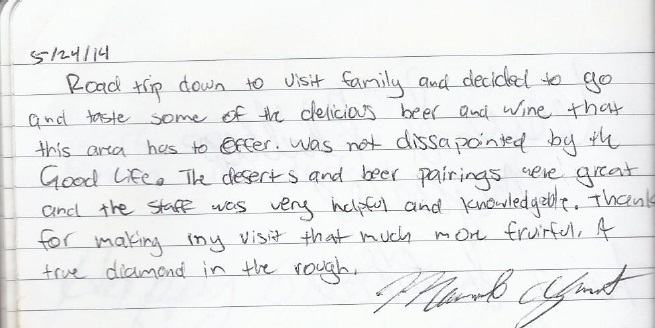 5/24/14
Road trip down to visit family and decided to go
and taste some of the delicious beer and wine that
this area has to offer. Was not dissapointed by the
Good Life. The deserts and beer pairings were great
and the staff was very helpful and knowledgable. Thanks
for making my visit that much more fruirful. A
true diamond in the rough.